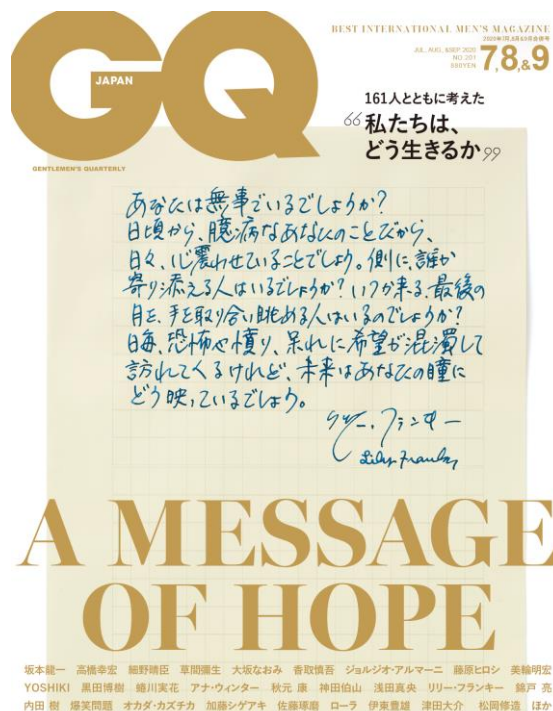 GQ
JAPAN
GENTLEMEN'S QUARTERLY
BEST INTERNATIONAL MEN'S MAGAZINE
2020年7月,8月&9月合併号
JUL, AUG, &SEP 2020
NO.201
690YEN
7,8,&9
161人とともに考えた
“私たちは、
どう生きるか”
あなたは無事でいるでしょうか?
日頃から、臆病なあなたのことだから、
日々、心震わせていることでしょう。側に、誰か
寄り添える人はいるでしょうか?いつか来る、最後の
月を、手を取り合い眺める人はいるのでしょうか?
日毎、恐怖や憤り、呆れに希望が混濁して
訪れてくるけれど、未来はあなたの瞳に
どう映っているでしょう。
リリー・フランキー
Lily Franky
A MESSAGE
OF HOPE
坂本龍一 高橋幸宏 細野晴臣 草間彌生 大坂なおみ 香取慎吾 ジョルジオ・アルマーニ 藤原ヒロシ 美輪明宏
YOSHIKI 黒田博樹 蜷川実花 アナ・ウィンター 秋元 康 神田伯山 浅田真央 リリー・フランキー 錦戸 亮
内田 樹 爆笑問題 オカダ・カズチカ 加藤シゲアキ 佐藤琢磨 ローラ 伊東豊雄 津田大介 松岡修造 ほか